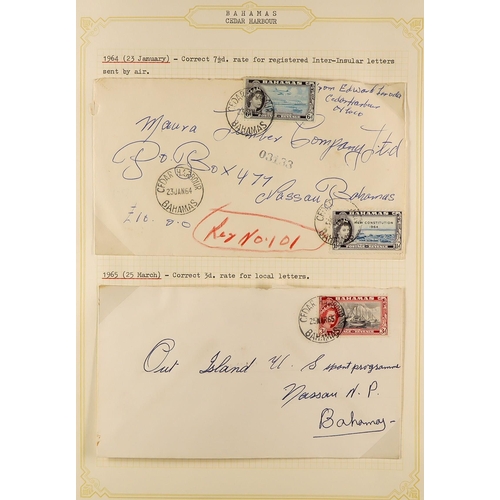 BAHAMAS
CEDAR HARBOUR
1964 (23 January) - Correct 7½d. rate for registered Inter-Insular letters
sent by air.
BAHAMAS
From Edward
Cedar Harbour
Abaco
CEDAR HARBOUR
BAHAMAS
Maura Lumber Company Ltd
P.O. Box 477
Nassau Bahamas
CEDAR HARBOUR
23 JAN 64
BAHAMAS
£16.0.0
Reg No. 101
NEW CONSTITUTION
1964
1965 (25 March) - Correct 3d. rate for local letters.
BAHAMAS
CEDAR HARBOUR
25 MAR 65
BAHAMAS
Out Island U. S
programme
Nassau N. P.
Bahamas